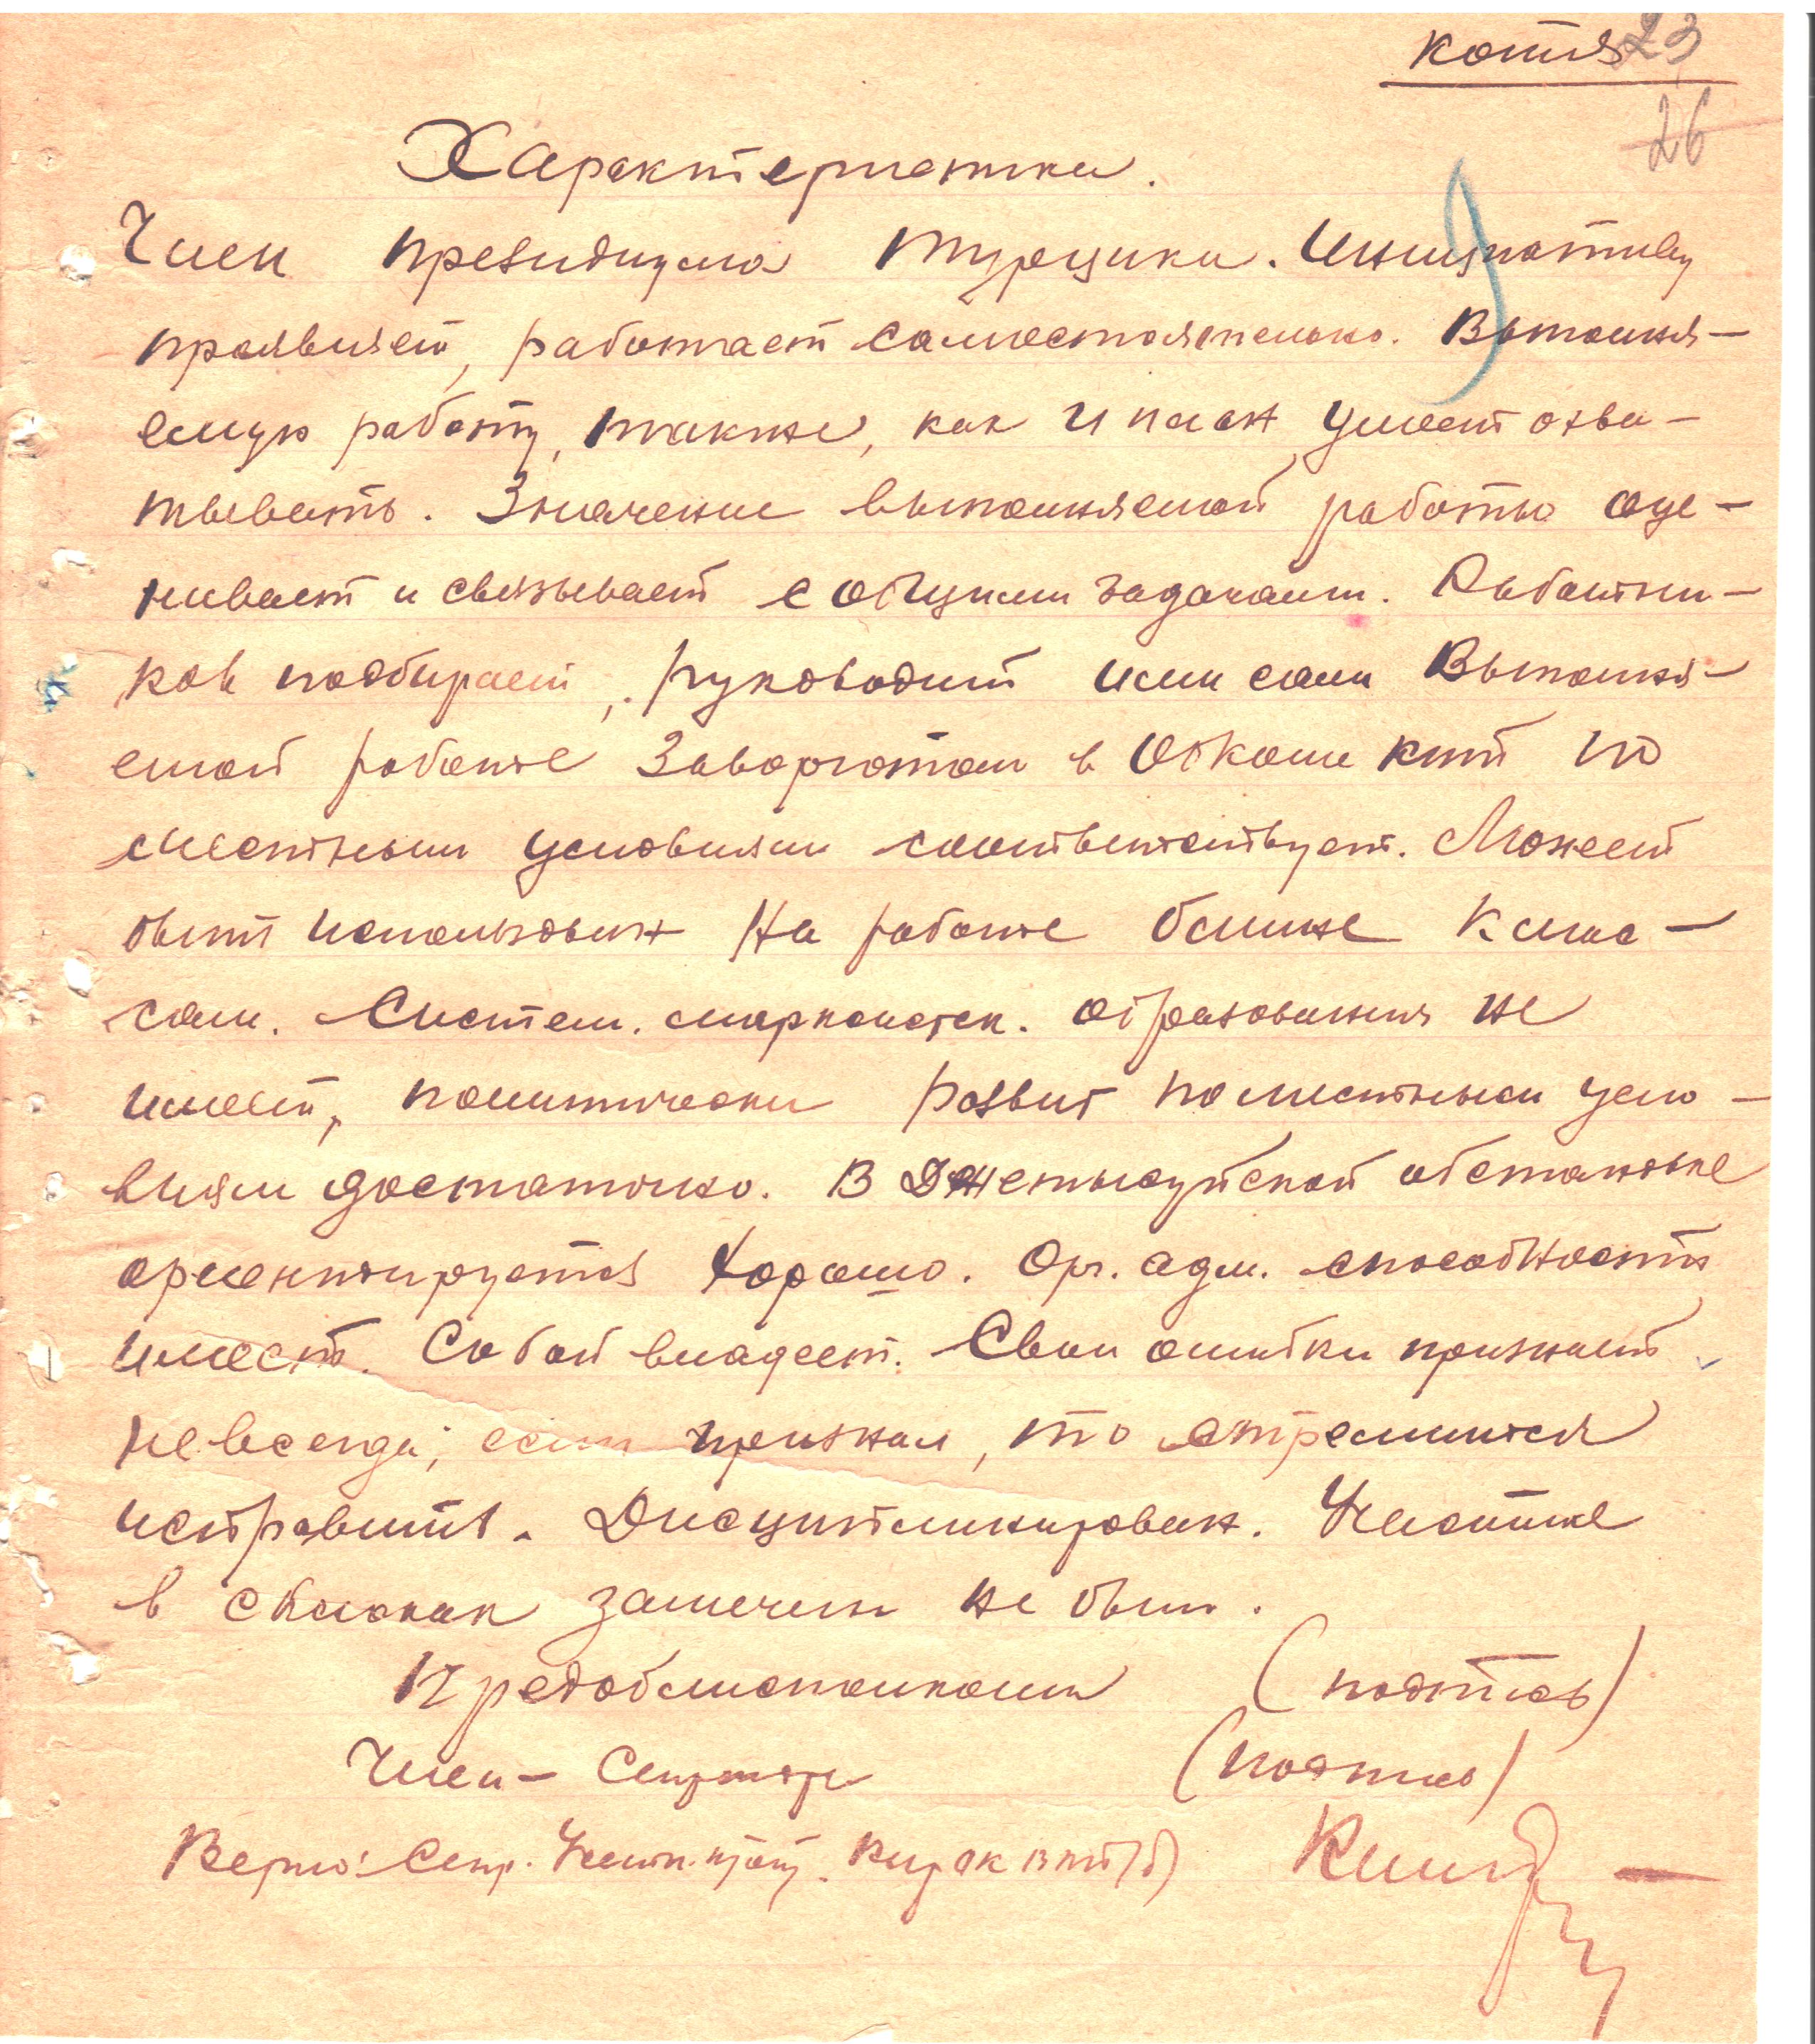 копия 23
26
Характеристика.
Член президиума Турцика. Инициативу
проявляет, работает самостоятельно. Выполня-
емую работу, также, как и план умеет охва-
тывать. Значение выполняемой работы оце-
нивает и связывает с общими задачами. Работни-
ков подбирает, руководит ими сам. Выполня-
емой работе Заворготом в Обкоме КПТ по
местным условиям соответствует. Может
быть использован на работе ближе к мас-
сам. Систем. марксистск. образования не
имеет, политически развит по местным усло-
виям достаточно. В Джетысуйской обстановке
ориентируется хорошо. Орг. адм. способность
имеет. Собой владеет. Свои ошибки признает
не всегда; если признал, то стремится
исправить. Дисциплинирован. Участие
в склоках замечен не был.
Предоблисполкома (подпись)
Член - Секретарь (подпись)
Верно: Секр.